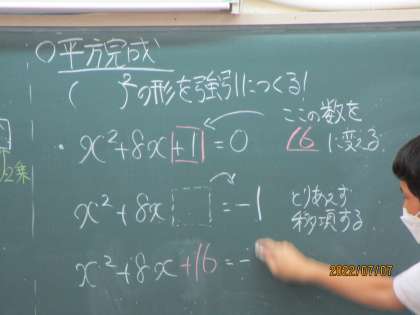 ○平方完成
(　)²の形を強引につくる!
x²+8x+1=0
ここの数を
16に変える
x²+8x =-1
とりあえず
移項する
x²+8x+16=-
2乗
2022/07/07